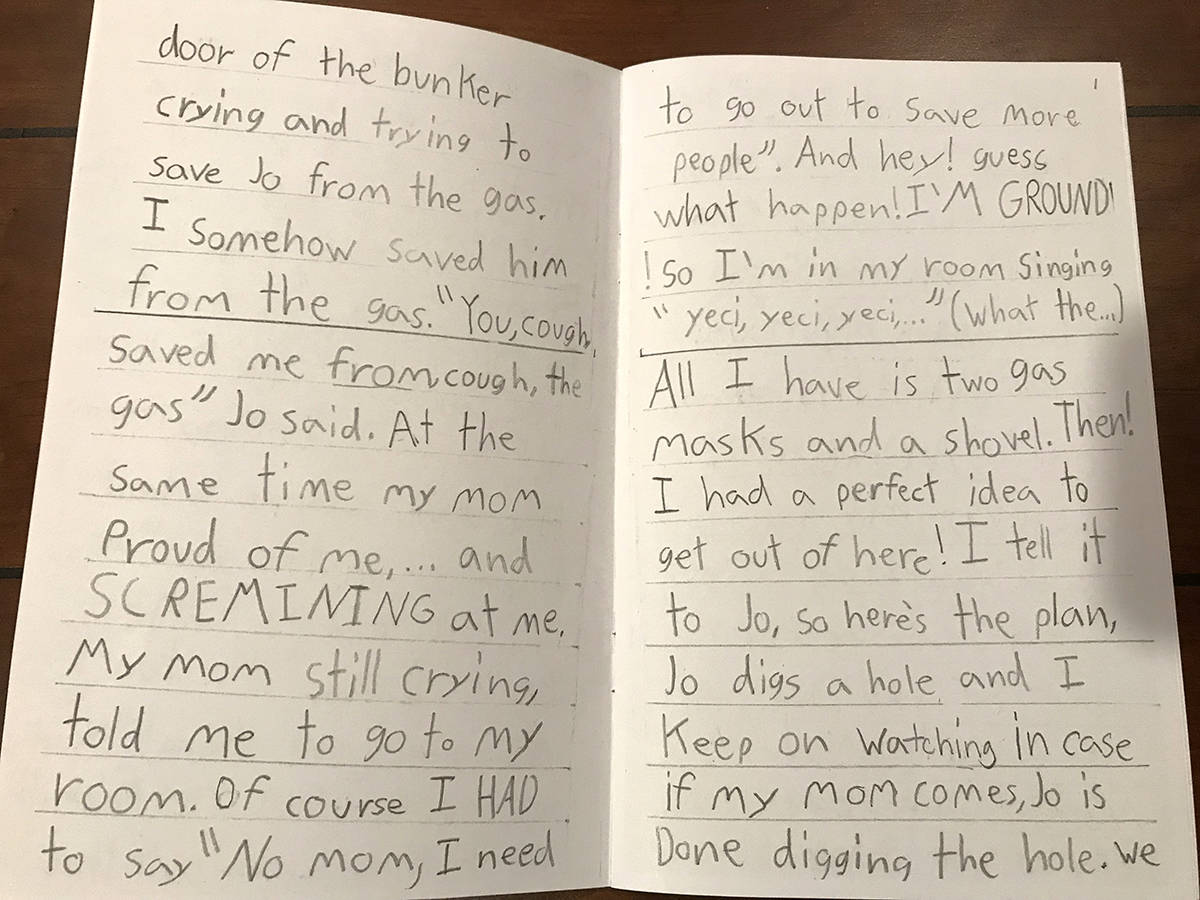 door of the bunker
crying and trying to
save Jo from the gas.
I somehow saved him
from the gas. "You, cough,
saved me from cough, the
gas" Jo said. At the
same time my mom
Proud of me,... and
SCREMINING at me.
My mom still crying,
told me to go to my
room. Of course I HAD
to say "No mom, I need
1
to go out to save more
people". And hey! guess
what happen! I'M GROUND!
! So I'm in my room singing
" yeci, yeci, yeci,..." (what the...)
All I have is two gas
masks and a shovel. Then!
I had a perfect idea to
get out of here! I tell it
to Jo, so here's the plan,
Jo digs a hole and I
Keep on watching in case
if my mom comes, Jo is
Done digging the hole. We